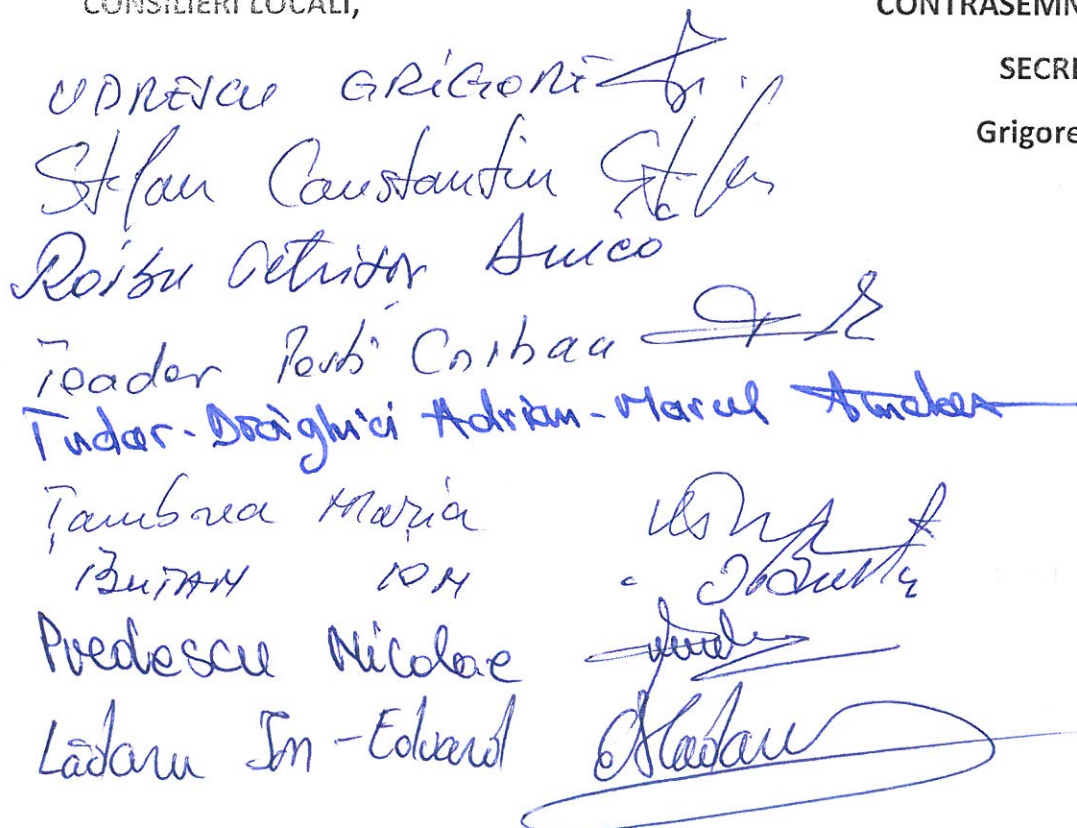 CONSILIERI LOCALI,
CONTRASEMN
SECRE
Grigore
UDRESCU GRIGORE
Ștefan Constantin
Roibu
Teodor Corbau
Tudor-Drăghici Adrian-Marcel
Țambrea Maria
BUTAN ION
Predescu Nicolae
Lădaru Ion-Eduard